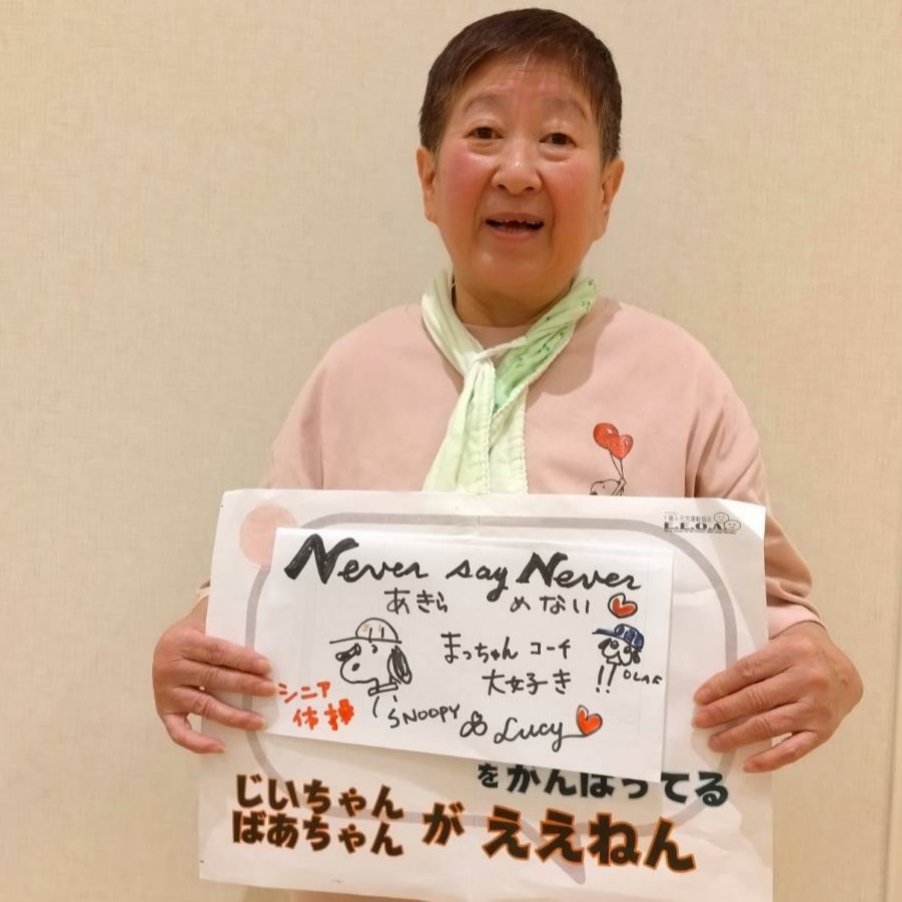 L.E.O.A
Never say Never
あきらめない
まっちゃん コーチ
大好き!!
OLAF
シニア
体操
SNOOPY
Lucy
をがんばってる
じいちゃん
ばあちゃん
が ええねん